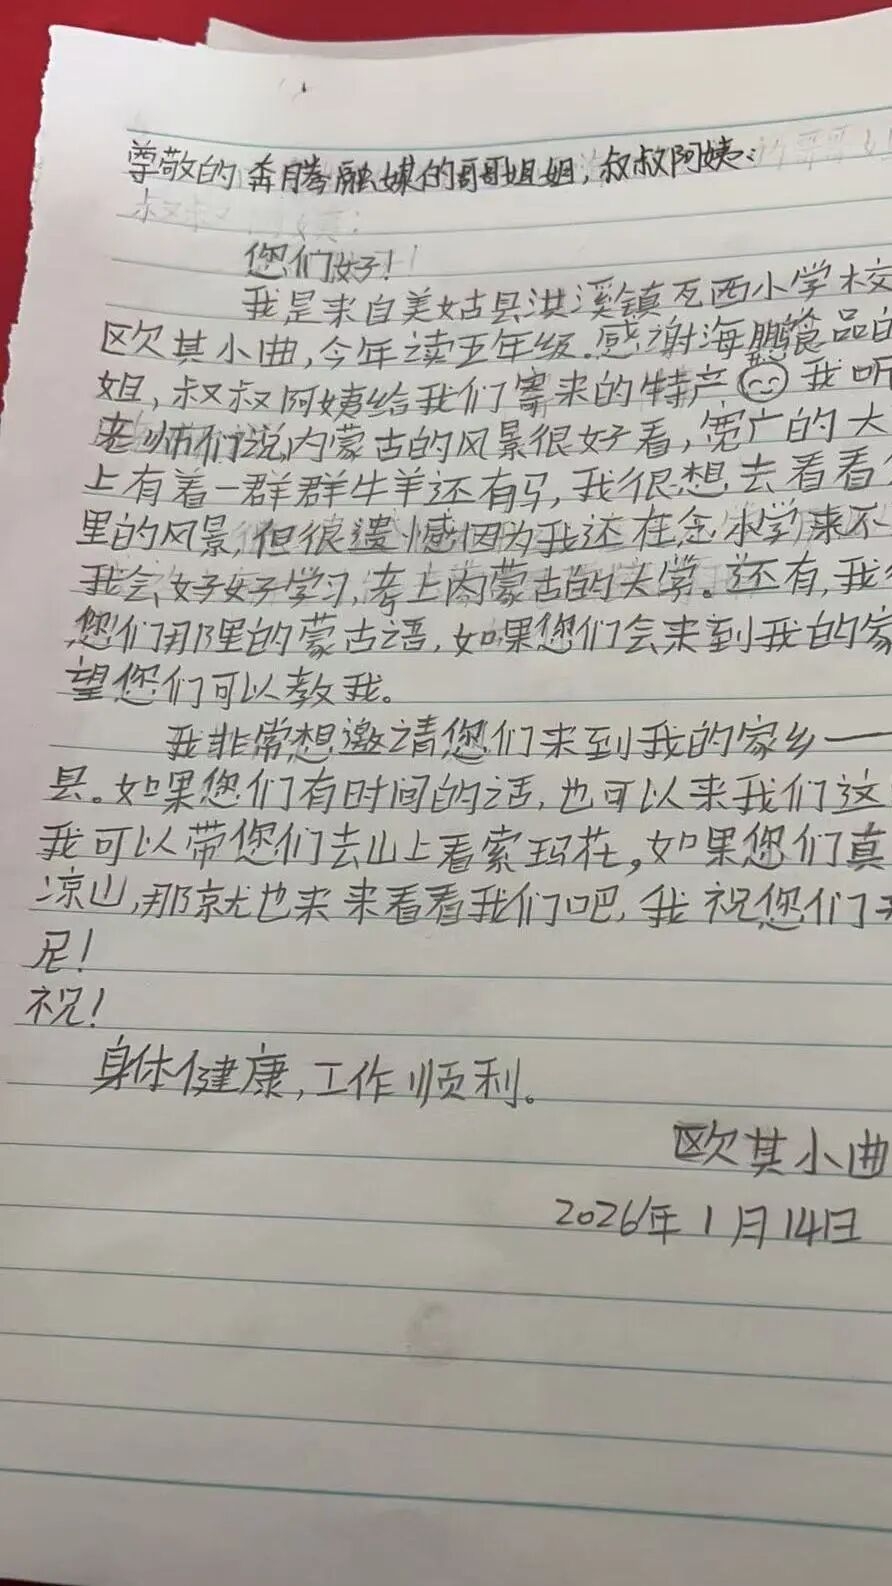 尊敬的奔腾融媒的哥哥姐姐,叔叔阿姨:
您们好!
我是来自美姑县洪溪镇瓦西小学校
欧其小曲,今年读五年级.感谢海鹏食品的
姐,叔叔阿姨给我们寄来的特产 我听
老师们说内蒙古的风景很好看,宽广的大
上有着一群群牛羊还有马,我很想去看看
里的风景,但很遗憾因为我还在念小学来不
我会好好学习,考上内蒙古的大学。还有,我
您们那里的蒙古语,如果您们会来到我的家
望您们可以教我。
我非常想邀请您们来到我的家乡——
县。如果您们有时间的话,也可以来我们这
我可以带您们去山上看索玛花,如果您们真
凉山,那就也来来看看我们吧,我祝您们
尼!
祝!
身体健康,工作顺利。
欧其小曲
2026年1月14日